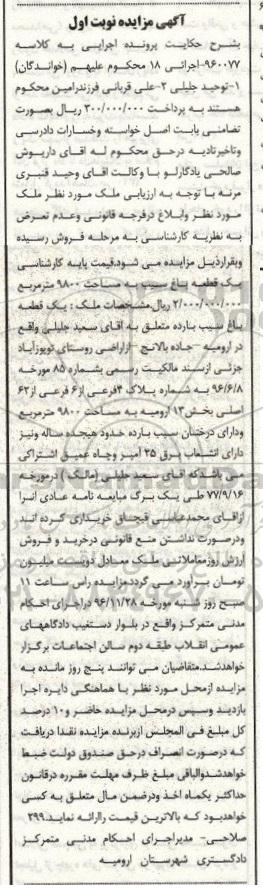 آگهی مزایده نوبت اول
بشرح حکایت پرونده اجرایی به کلاسه
۹۶۰۰۷۷-اجرائی ۱۸ محکوم علیهم (خواندگان)
۱-توحید جلیلی ۲-علی قربانی فرزندرامین محکوم
هستند به پرداخت ۳۰۰/۰۰۰/۰۰۰ ریال بصورت
تضامنی بابت اصل خواسته وخسارات دادرسی
وتاخیرتادیه درحق محکوم له اقای داریوش
صالحی یادگارلو با وکالت اقای وحید قنبری
مرنه با توجه به ارزیابی ملک مورد نظر ملک
مورد نظر وابلاغ درفرجه قانونی وعدم تعرض
به نظریه کارشناسی به مرحله فروش رسیده
وبقرارذیل مزایده می شود.قیمت پایه کارشناسی
یک قطعه باغ سیب به مساحت ۹۸۰۰ مترمربع
۲/۰۰۰/۰۰۰/۰۰۰ ریال.مشخصات ملک : یک قطعه
باغ سیب بارده متعلق به اقای سعید جلیلی واقع
در ارومیه -جاده بالانج -ازاراضی روستای توپوزآباد
جزئی ازسند مالکیت رسمی بشماره ۸۵ مورخه
۹۶/۶/۸ به شماره پلاک ۴فرعی از۶ فرعی از۶۲
اصلی بخش۱۳ ارومیه به مساحت ۹۸۰۰ مترمربع
ودارای درختان سیب بارده حدود هیجده ساله ونیز
دارای انشعاب برق ۲۵ امپر وچاه عمیق اشتراکی
می باشدکه اقای سعید جلیلی (مالک ) درمورخه
۷۷/۹/۱۶ طی یک برگ مبایعه نامه عادی انرا
ازاقای محمدعباسی قبچاق خریداری کرده اند
ودرصورت نداشتن منع قانونی درخرید و فروش
ارزش روزمعاملاتی ملک معادل دویست میلیون
تومان برآورد می گردد.مزایده راس ساعت ۱۱
صبح روز شنبه مورخه ۹۶/۱۱/۲۸ دراجرای احکام
مدنی متمرکز واقع در بلوار دستغیب دادگاههای
عمومی انقلاب طبقه دوم سالن اجتماعات برگزار
خواهدشد.متقاضیان می توانند پنج روز مانده به
مزایده ازمحل مورد نظر با هماهنگی دایره اجرا
بازدید وسپس درمحل مزایده حاضر و۱۰ درصد
کل مبلغ فی المجلس ازبرنده مزایده نقدا دریافت
که درصورت انصراف درحق صندوق دولت ضبط
خواهدشدوالباقی مبلغ ظرف مهلت مقرره درقانون
حداکثر یکماه اخذ ودرضمن مال متعلق به کسی
خواهدبود که بالاترین قیمت راارائه نماید.۲۹۹
صلاحی- مدیراجرای احکام مدنی متمرکز
دادگستری شهرستان ارومیه